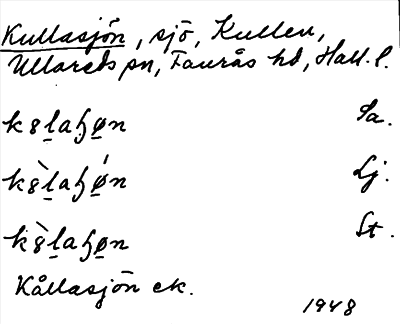 Kullasjön, sjö, Kullen,
Ullareds sn, Faurås hd, Hall. l.
k8l̲aꜧø̲n Sa.
k8̀l̲aꜧǿ̲n Lj.
k8̀l̲aꜧø̲n St.
Kållasjön ek.
1948